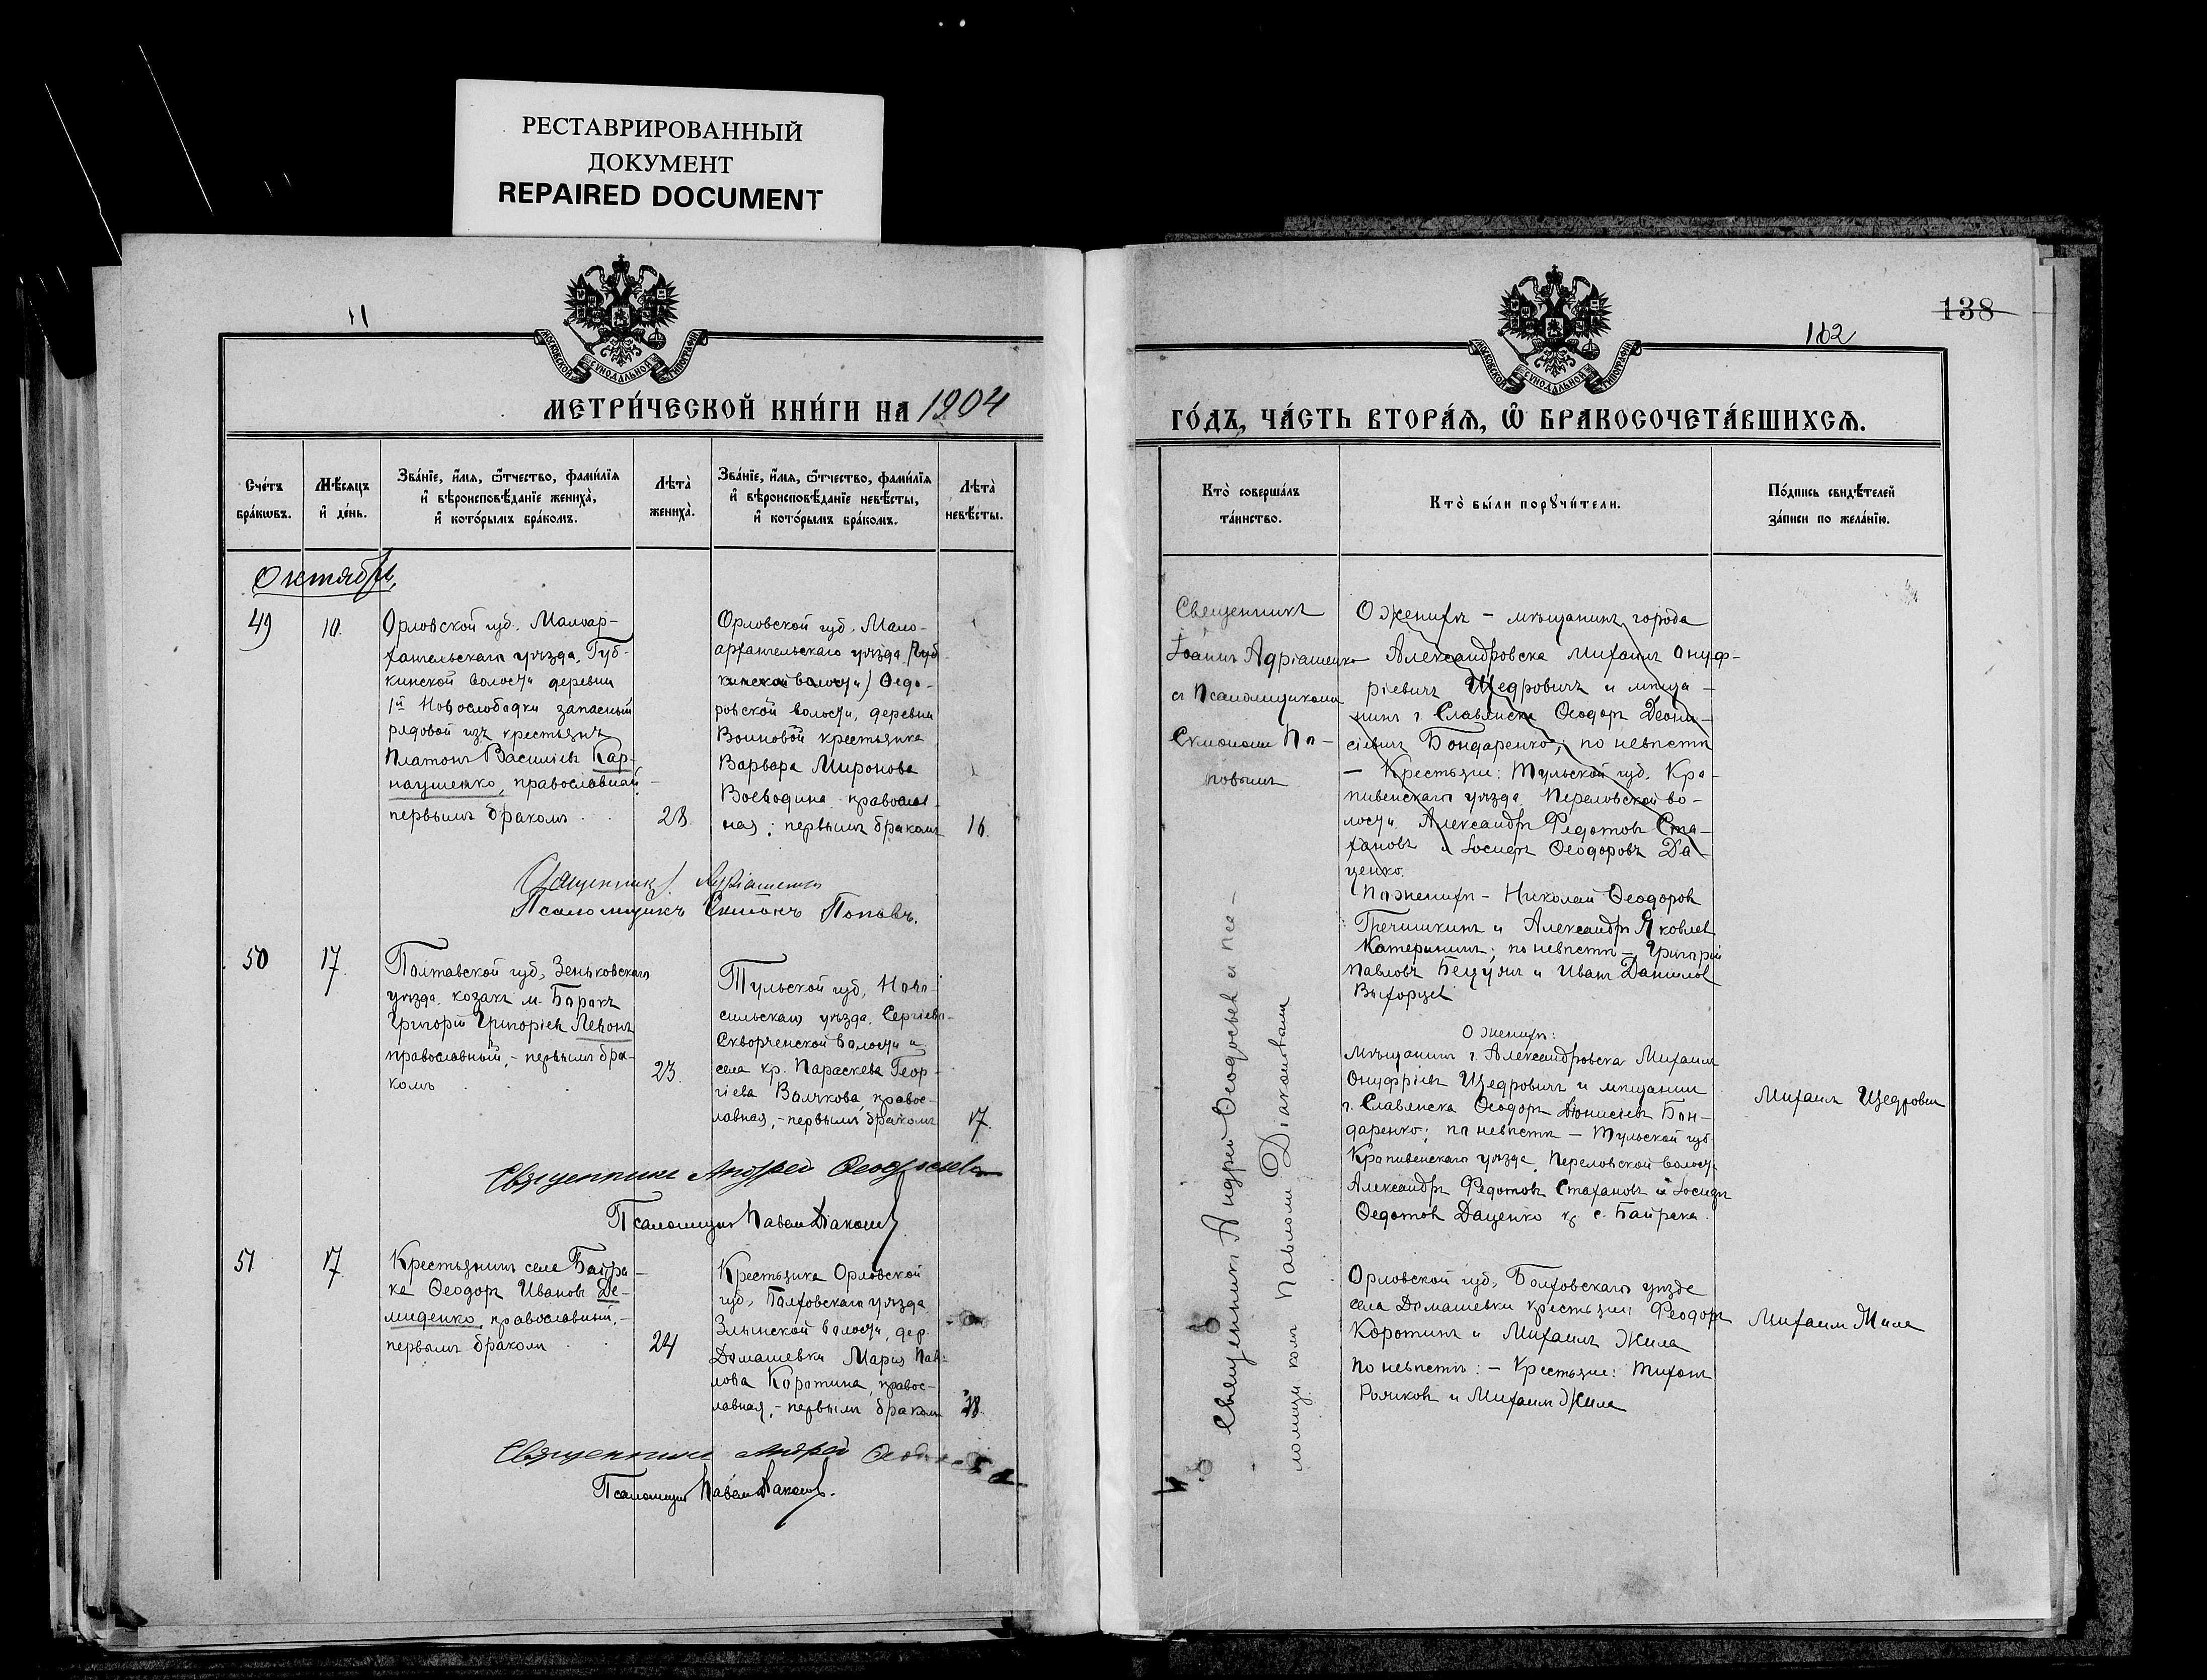 РЕСТАВРИРОВАННЫЙ
ДОКУМЕНТ
REPAIRED DOCUMENT
МОСКОВСКОЙ СУНОДАЛЬНОЙ ТИПОГРАФІИ
МЕТРИ́ЧЕСКОЙ КНИ́ГИ НА 1904
Сче́тъ
бра́кѡвъ.
Мѣ́сяцъ
и҆ де́нь.
Зва́нїе, и҆́мя, ѻ҆́тчество, фами́лїя
и҆ вѣроисповѣ́данїе жениха̀,
и҆ кото́рымъ бра́комъ.
Лѣта̀
жениха̀.
Зва́нїе, и҆́мя, ѻ҆́тчество, фами́лїя
и҆ вѣроисповѣ́данїе невѣ́сты,
и҆ кото́рымъ бра́комъ.
Лѣта̀
невѣ́сты.
Октябрь,
49
10.
Орловской губ. Малоар-
хангельскаго уѣзда, Губ-
кинской волости деревни
1й Новослободки запасный
рядовой изъ крестьянъ
Платонъ Василіевъ Кар-
наушенко, православный,-
первымъ бракомъ
28
Орловской губ. Мало-
архангельскаго уѣзда (Губ-
кинской волости) Ѳедо-
ровской волости, деревни
Воиновой крестьянка
Варвара Миронова
Воеводина православ-
ная; первымъ бракомъ
16.
Священникъ І. Адріашенко
Псаломщикъ Симеонъ Поповъ.
50
17.
Полтавской губ, Зеньковскаго
уѣзда. козакъ м. Боракъ
Григорій Григоріевъ Левонъ
православный,- первымъ бра-
комъ
23.
Тульской губ, Ново-
сильскаго уѣзда, Сергіево-
Скворченской волости и
села кр. Параскева Геор-
гіева Волчкова, правос-
лавная,- первымъ бракомъ
17.
Священникъ Андрей Ѳеодосьевъ
Псаломщикъ Павелъ Діаконовъ
51
17.
Крестьянинъ села Байра-
ка Ѳеодоръ Ивановъ Де-
миденко, православный,-
первымъ бракомъ
24
Крестьянка Орловской
губ, Болховскаго уѣзда
Злынской волости, дер.
Домашевки Марія Пав-
лова Коротина, правос-
лавная,- первымъ бракомъ
18.
Священникъ Андрей
Псаломщикъ Павелъ Діаконовъ.
138
102
МОСКОВСКОЙ СУНОДАЛЬНОЙ ТИПОГРАФІИ
ГО́ДЪ, ЧА́СТЬ ВТОРА́Я, Ѽ БРАКОСОЧЕТА́ВШИХСЯ.
Кто̀ соверша́лъ
та́инство.
Кто̀ бы́ли порꙋчи́тели.
По́дпись свидѣ́телей
за́писи по жела́нїю.
Священникъ
Іоаннъ Адріашенко
съ Псаломщикомъ
Симеономъ По-
повымъ
О женихѣ - мѣщанинъ города
Александровска Михаилъ Онуф-
ріевичъ Щедровичъ и мѣща-
нинъ г. Славянска Ѳеодоръ Діони-
сіевичъ Бондаренко; по невѣстѣ
- Крестьяне: Тульской губ. Кра-
пивенскаго уѣзда Переловской во-
лости Александръ Федотовъ Ста-
хановъ и Іосифъ Ѳеодоровъ Да-
ценко.
По женихѣ - Николай Ѳеодоровъ
Гречишкинъ и Александръ Яковлевъ
Катеринин; по невѣстѣ - Григорій
Павловъ и Иванъ Даниловъ
Выходцев
Священникъ Андрей Ѳеодосьевъ съ пса-
ломщикомъ Павломъ Діаконовымъ
О женихѣ:
Мѣщанинъ г. Александровска Михаилъ
Онуфріевъ Щедровичъ и мѣщанинъ
г. Славянска Ѳеодоръ Діонисіевъ Бон-
даренко; по невѣстѣ - Тульской губ
Крапивенскаго уѣзда, Переловской волости
Александръ Федотовъ Стахановъ и Іосифъ
Ѳедотовъ Даценко кр. с. Байрака.
Михаилъ Щедрович
Орловской губ, Болховскаго уѣзда
села Домашевки крестьяне Феодоръ
Коротинъ и Михаилъ Жила
По невѣстѣ: - Крестьяне: Тихонъ
Рочиковъ и Михаилъ Жила
Михаилъ Жила